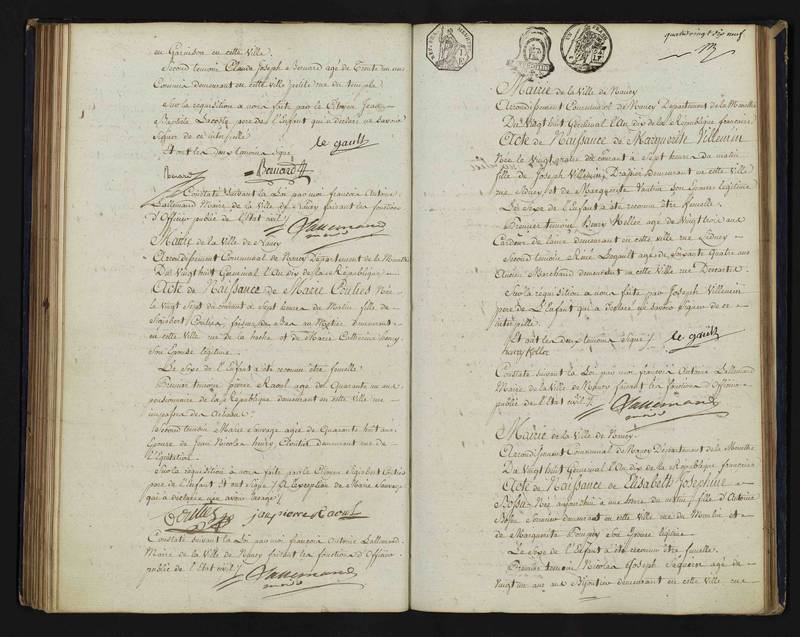 en Garnison en cette Ville.
Second temoin Claude Joseph Bernard agé de Trente un ans
Commis demeurant en cette ville petite rue du temple
Sur la réquisition à nous faite par le Citoyen Jean
Baptiste Lecocq pere de l'Enfant qui a déclaré ne savoir
Signer de ce interpellé
Et ont les deux temoins Signé
le gault
Bernard
Constaté Suivant la Loi par moi françois Antoine
Lallemand Maire de la Ville de Nancy faisant les fonctions
d'Officier public de l'Etat civil /.
Lallemand
maire
Mairie de la Ville de Nancy
Arrondissement Communal de Nancy Département de la Meurthe
Du Vingt huit Germinal l'An dix de la République
Acte de Naissance de Marie Née
le Vingt Sept du courant à Sept heures du Matin fille de
demeurant
en cette Ville rue de la hache et de Marie Catherine henry
Son Epouse légitime.
Le Sexe de l'Enfant a été reconnu être femelle
Premier temoin pierre Raoul agé de Quarante un ans
pensionnaire de la République demeurant en cette Ville rue
Second temoin Marie Sauvage agée de Quarante huit ans
Epouse de Jean Nicolas henry demeurant rue de
l'Equitation.
Sur la réquisition à nous faite par le Citoyen
pere de l'Enfant Et ont Signé / A l'exception de Marie Sauvage
qui a déclaré
jan pierre Raoul
Constaté Suivant la Loi par moi françois Antoine Lallemand
Maire de la Ville de Nancy faisant les fonctions d'Officier
public de l'Etat civil /.
Lallemand
maire
quatrevingt dix neuf
Mairie de la Ville de Nancy
Arrondissement Communal de Nancy Département de la Meurthe
Du Vingt huit Germinal l'An dix de la République françoise
Acte de Naissance de Marguerite Villemin
Née le Vingt quatre du courant à Sept heures du matin
fille de Joseph Villemin, Drapier demeurant en cette Ville
rue et de Marguerite Son Epouse légitime
Le Sexe de l'Enfant a été reconnu être femelle.
Premier temoin Henry Koller agé de Vingt trois ans
Cardeur de laine demeurant en cette ville rue Sidney
Second temoin René Legault agé de Soixante Quatre ans
Ancien Marchand demeurant en cette Ville rue Descartes.
Sur la réquisition à nous faite par Joseph Villemin
pere de l'Enfant qui a Déclaré ne Savoir Signer de ce
interpellé.
Et ont les deux temoins Signé /.
le gault
harry Koller
Constaté suivant la Loi par moi françois Antoine Lallemand
Maire de la Ville de Nancy faisant les fonctions d'Officier
public de l'Etat civil /.
Lallemand
maire
Mairie de la Ville de Nancy.
Arrondissement Communal de Nancy Département de la Meurthe
Du Vingt huit Germinal l'An dix de la République françoise
Acte de Naissance de Elisabeth Josephine
Née aujourd'hui à une heure du matin, fille d'Antoine
Serrurier demeurant en cette Ville rue du Moulin et
de Marguerite Son Epouse légitime
Le Sexe de l'Enfant a été reconnu être femelle.
Premier temoin Nicolas Joseph agé de
Vingt un ans Bijoutier demeurant en cette Ville rue